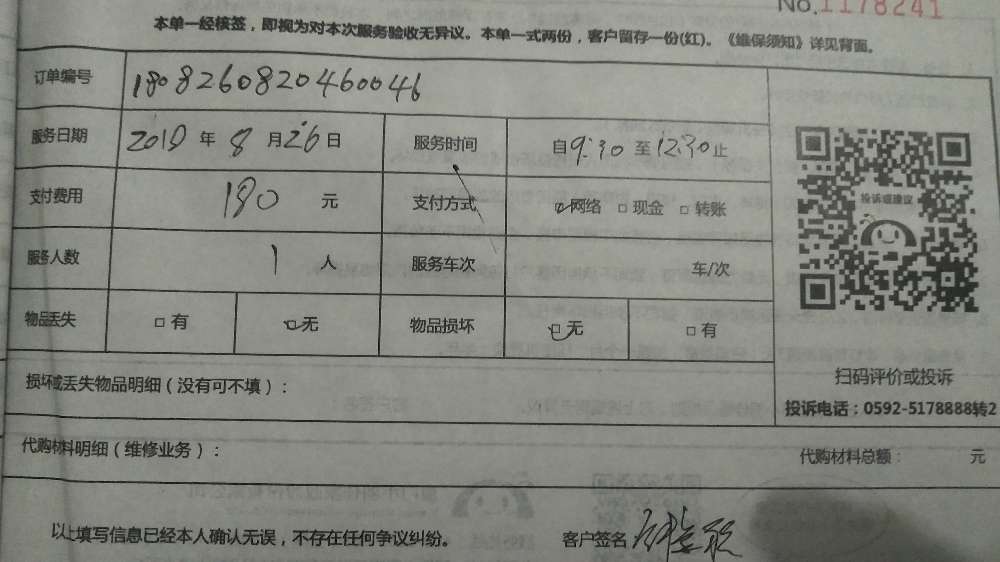 No.1178241
本单一经核签，即视为对本次服务验收无异议。本单一式两份，客户留存一份(红)。《维保须知》详见背面。
订单编号 1808260820460046
服务日期 2018 年 8 月 26 日 服务时间 自 9:30 至 12:30 止
支付费用 180 元 支付方式 ☑网络 □现金 □转账
服务人数 1 人 服务车次 车/次
物品丢失 □有 ☑无 物品损坏 ☑无 □有
投诉或建议
扫码评价或投诉
投诉电话：0592-5178888转2
损坏或丢失物品明细（没有可不填）：
代购材料明细（维修业务）： 代购材料总额： 元
以上填写信息已经本人确认无误，不存在任何争议纠纷。 客户签名